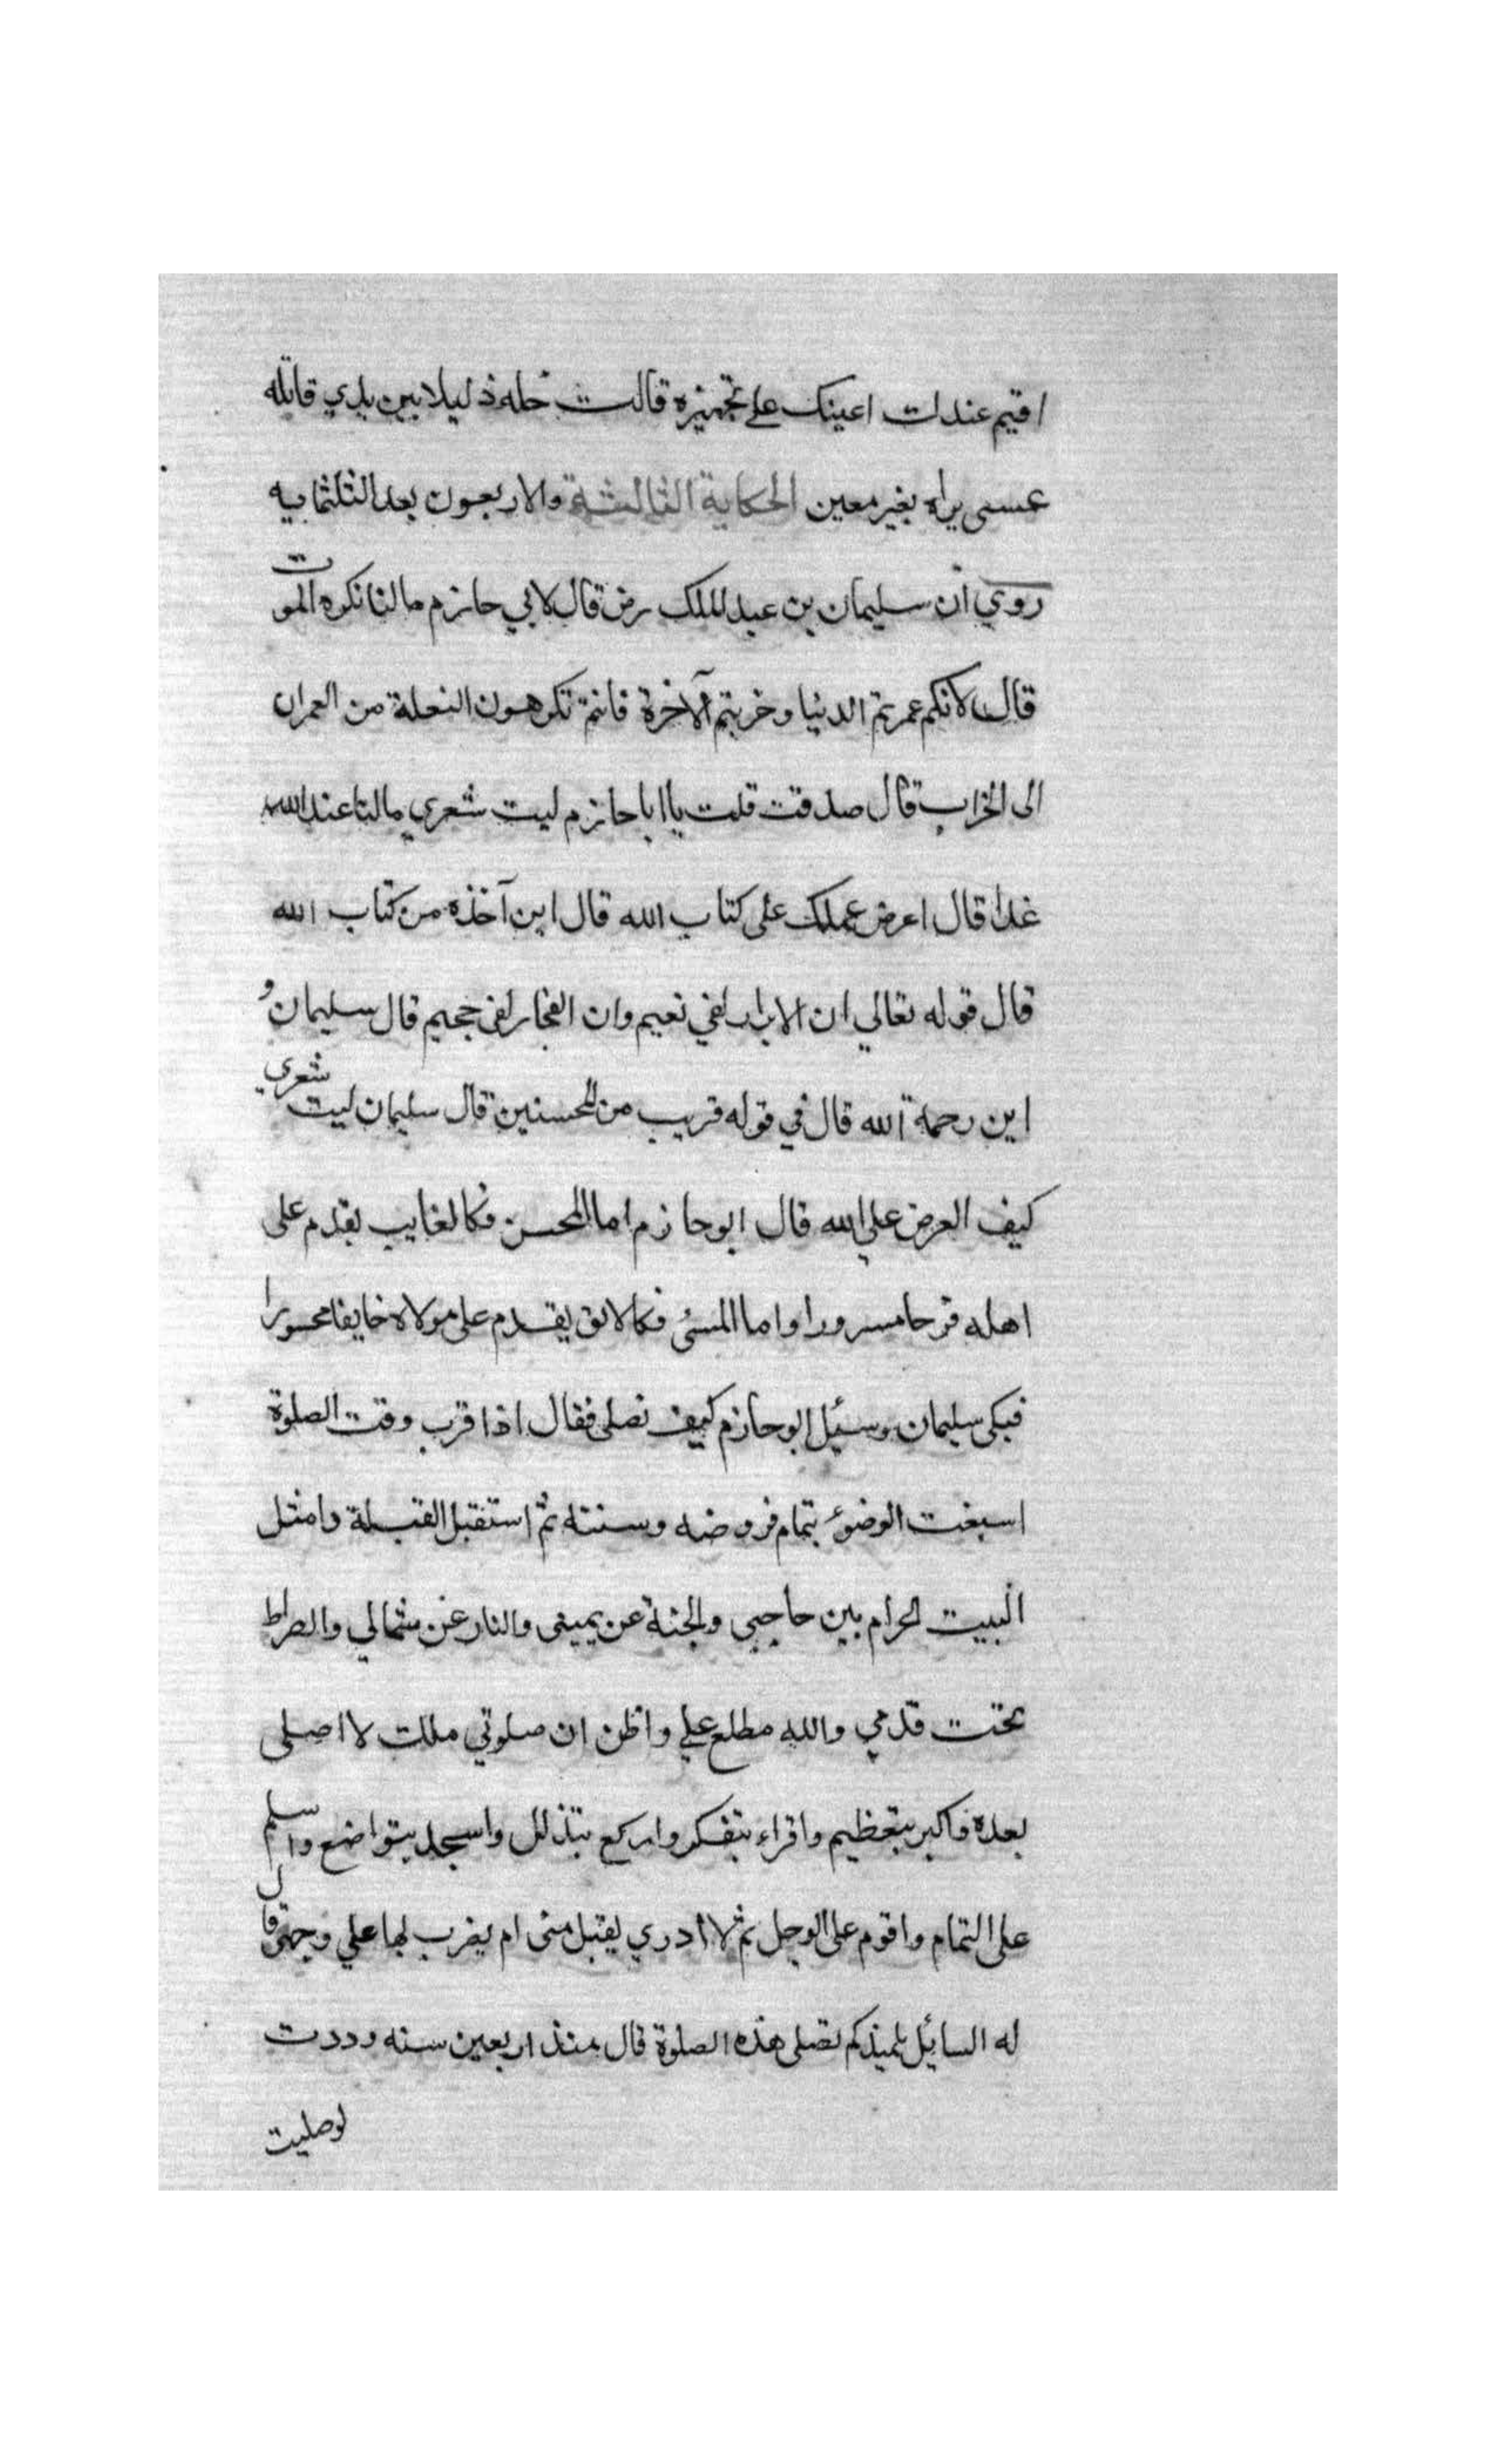 اقيم عندك اعينك على تجهيزه قالت خله ذليلا بين يدي قاتله
عسى يراه بغير معين الحكاية الثالثة والاربعون بعد الثلثمايه
روي ان سليمان بن عبد الملك رض قال لابي حازم مالنا نكره الموت
قال لانكم عمرتم الدنيا وخربتم الآخرة فانتم تكرهون النعلة من العمران
الى الخراب قال صدقت قلت يا ابا حازم ليت شعري مالنا عند الله
غدا قال اعرض عملك على كتاب الله قال اين آخذه من كتاب الله
قال قوله تعالي ان الابرار لفي نعيم وان الفجار لفى جحيم قال سليمان و
اين رحمة الله قال في قوله قريب من المحسنين قال سليمان ليت شعري
كيف العرض علي الله قال ابو حازم اما المحسن فكالغايب يقدم على
اهله فرحا مسرورا واما المسئ فكالابق يقدم على مولاه خايفا محسورا
فبكى سليمان وسئيل ابو حازم كيف تصلى فقال اذا قرب وقت الصلوة
اسبغت الوضؤ بتمام فروضه وسننه ثم استقبل القبلة وامثل
البيت الحرام بين حاجبى والجنة عن يمينى والنار عن شمالي والصراط
تحت قدمي والله مطلع علي واظن ان صلوتي ملك لا اصلى
بعده فاكبر بتعظيم واقراء بتفكر واركع بتذلل واسجد بتواضع واسلم
على التمام واقوم على الوجل ثم لا ادري يقبل منى ام يضرب لها علي وجهى قال
له السائيل بلميذكم تصلى هذه الصلوة قال منذ اربعين سنه وددت
لو صليت